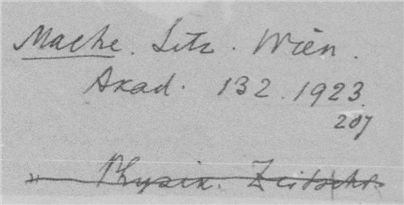 Mache. Sitz. Wien.
Akad. 132. 1923.
207
" Physik. Zeitschr.